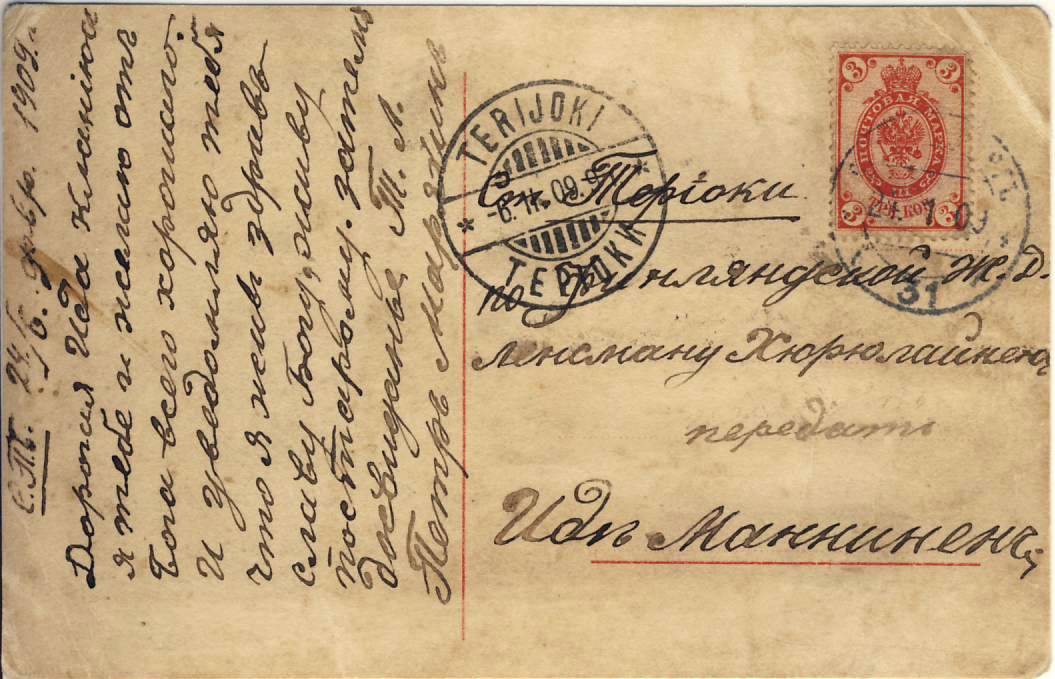 С.П. 24/I 6. февр. 1909 г.
Дорогая Ида кланяюсь
я тебе и желаю отъ
Бога всего хорошаго.
И уведомляю тебя
что я живъ здравъ
славу Богу, живу
постарому. затемъ
досвиданье Т. Л.
Петръ
TERIJOKI
ТЕРІОКИ
3
3
ПОЧТОВАЯ МАРКА
ТРИ КОП.
3
3
Ст. Теріоки
по Финляндской Ж. Д.
Ленсману Хюрюляйнену
передать
Иде Маннинень
31